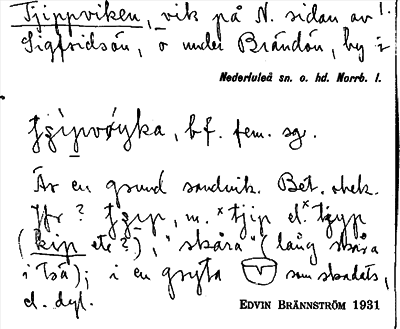 Tjippviken, vik på N. sidan av
Sigfridsön, ö under Brändön, by i
Nederluleå sn. o. hd. Norrb. l.
bf. fem. sg.
Är en grund sandvik. Bet. obek.
Jfr ? m. *tjip el.
(kip etc?), "skåra" (lång skåra
i tså); i en gryta som skadats,
el. dyl.
EDVIN BRÄNNSTRÖM 1931